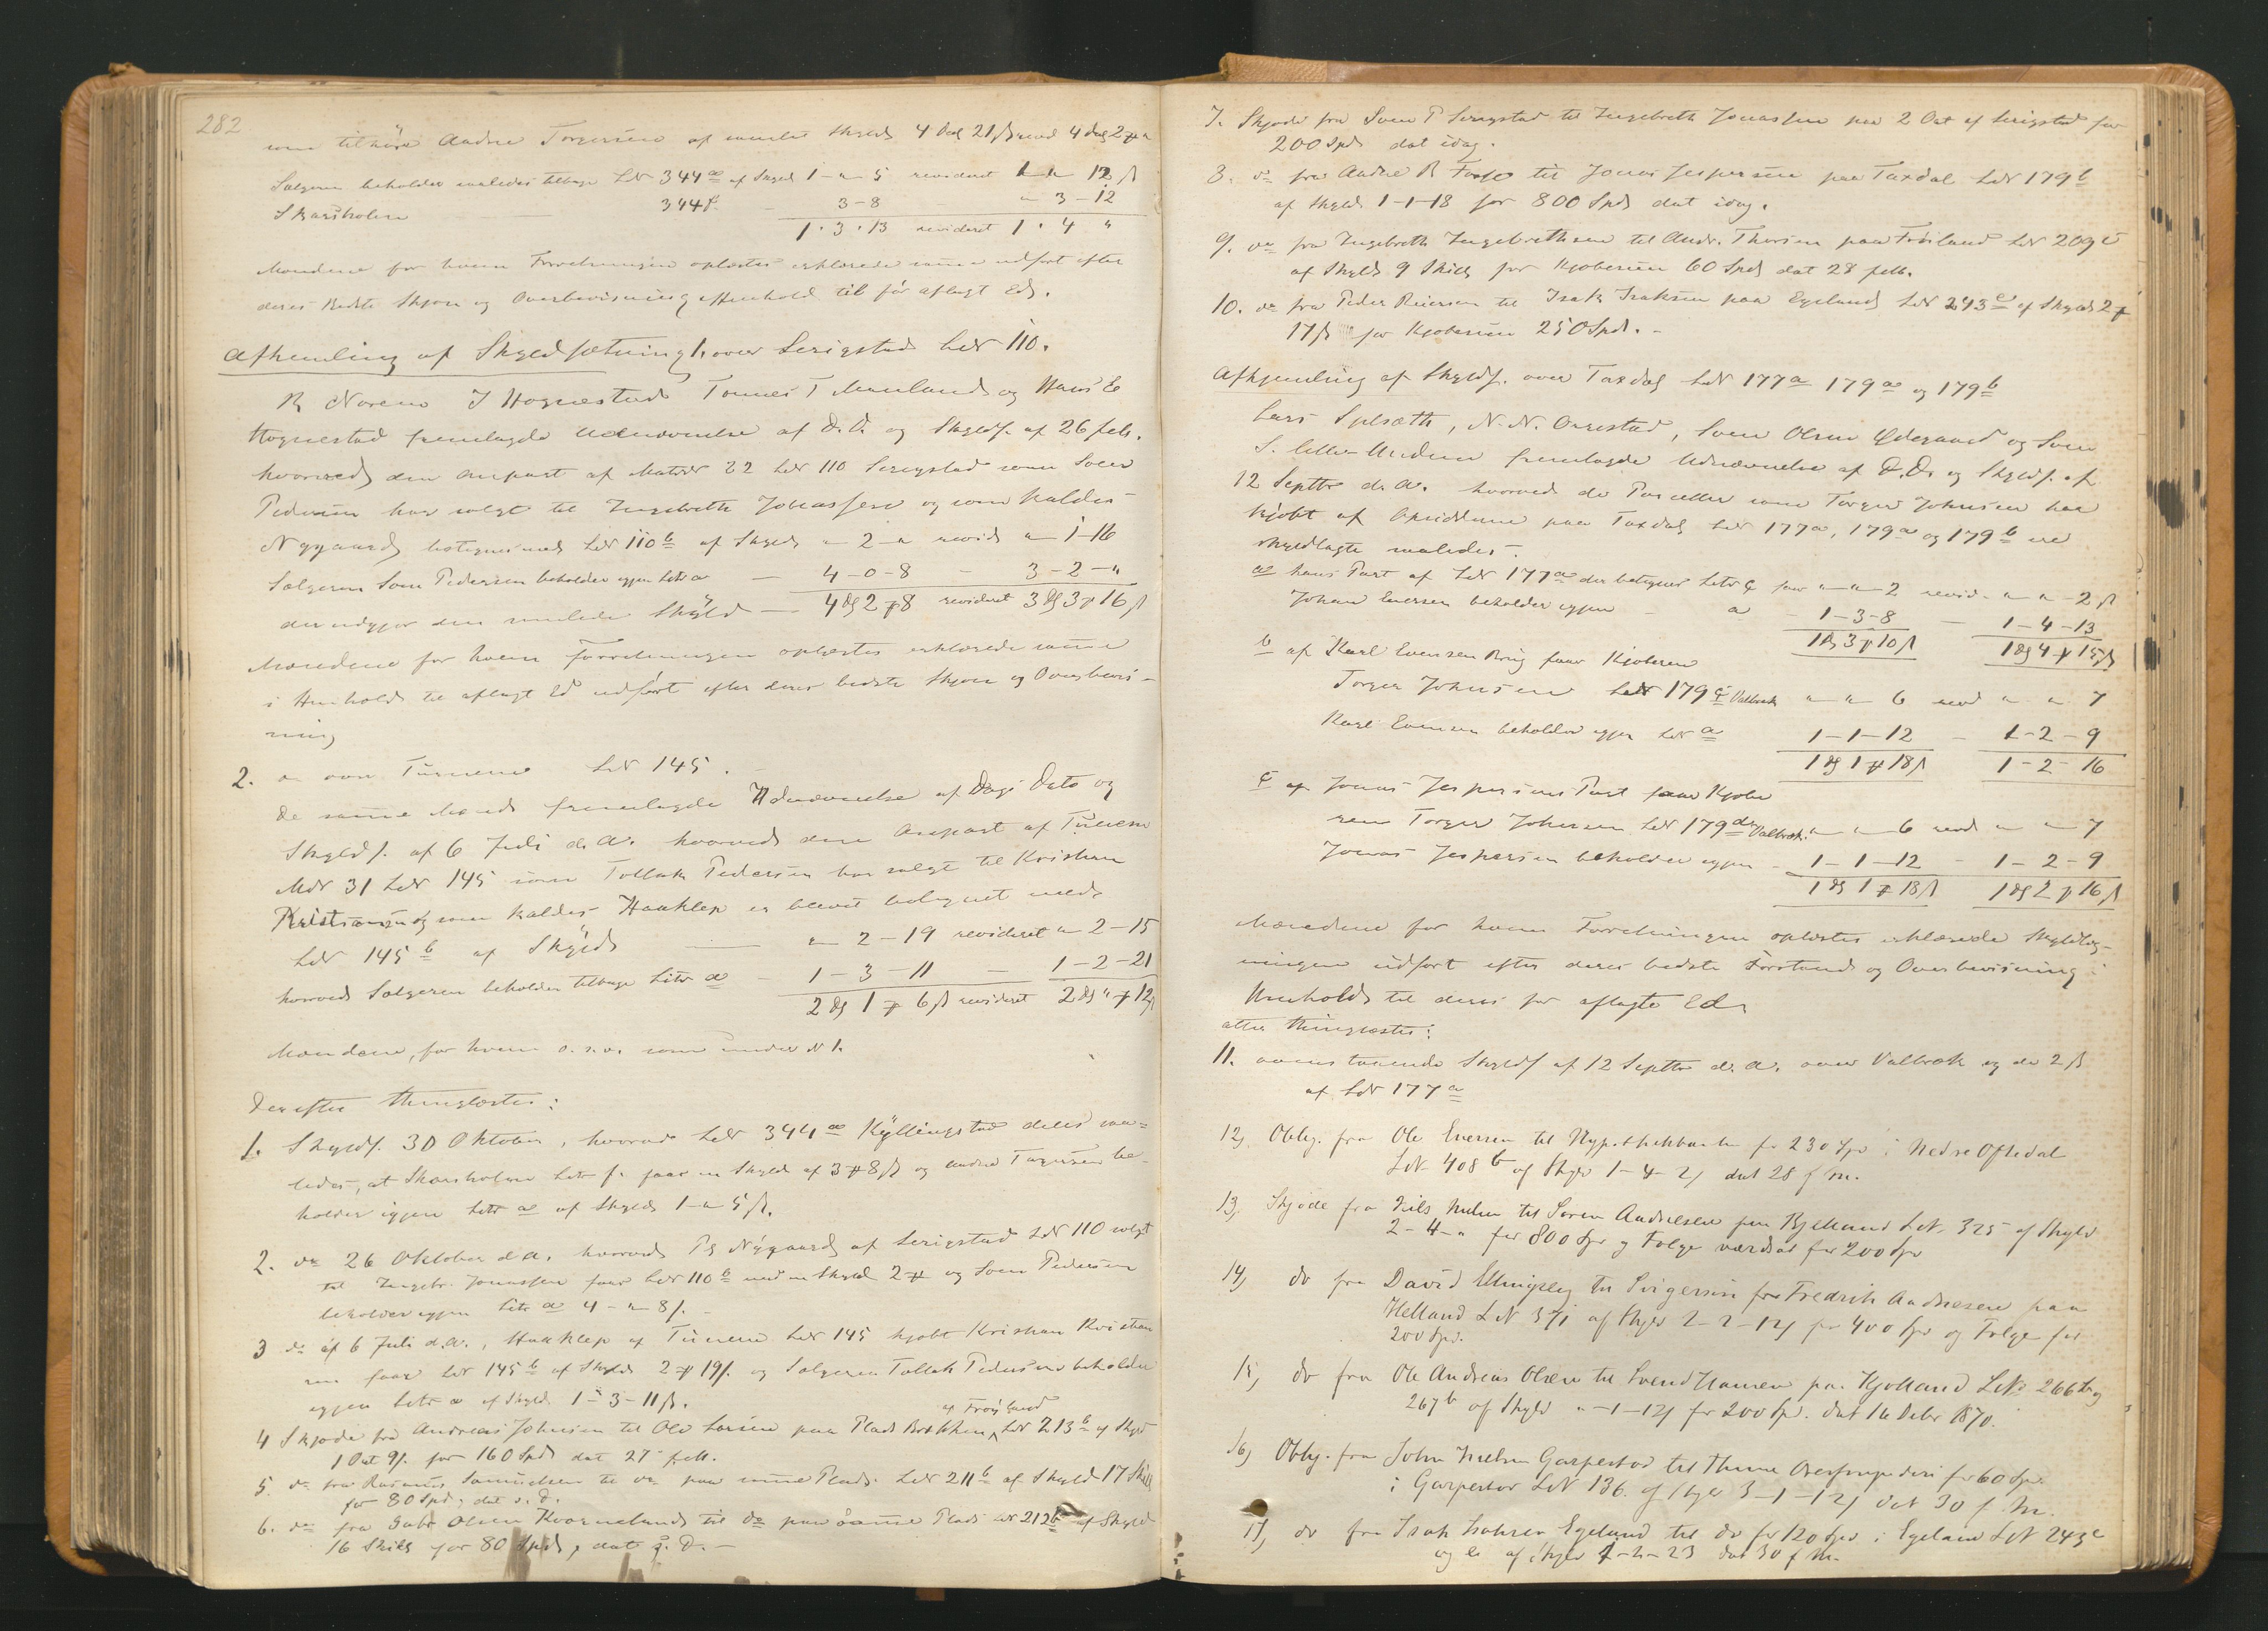 282
som tilhörer Andres Torgersen af samlet Skyld 4 Dal 21 ß revid 4 dal 2
Sælgeren beholder saaledes tilbage LNr 344 a af Skyld 1 - " 5 revideret 1 - " 12 ß
Skarsholm 344 f 3-8 " 3-12
1 . 3 . 13 revideret 1 . 4 "
Mændene for hvem Forretningen oplæstes erklærede samme udført efter
deres bedste Skjøn og Overbevisning i Henhold til før aflagt Ed.
Afhjemling af Skyldsætning 1. over Serigstad LNr 110.
Norem J Hognestad Tønnes T Mauland og Hans E
Hognestad fremlagde Udnævnelse af d.D. og Skyldf. af 26 feb.
hvorved den Anpart af Matr 22 LNr 110 Serigstad som Sven
Pedersen har solgt til Ingebreth Jonassen og som kaldes
Nygaard betegnes med LNr 110 b af Skyld " 2 - " revid " 1-16
Sælgeren Sven Pedersen beholder igjen Litr a 4-0-8 3-2-"
der udgjør den samlede Skyld 4 2 8 revideret 3 3 16 ß
Mændene for hvem Forretningen oplæstes erklærede samme
i Henhold til aflagt Ed udført efter deres bedste Skjøn og Overbevis-
ning
2. over Tunem LNr 145.
De samme Mænd fremlagde Udnævnelse af Dags Dato og
Skyldf. af 6 Juli d.A. hvorved den Anpart af Tunem
MNr 31 LNr 145 som Tollak Pedersen har solgt til Kristian
Kristiansen og som kaldes Haaklep er blevet betegnet med
LNr 145 b af Skyld " 2-19 revideret " 2-15
hvorved Sælgeren beholder tilbage Litr a 1-3-11 1-2-21
2 1 6 ß revideret 2 " 12 ß
Mændene, for hvem o.s.v. som under N 1.
Derefter thinglæstes:
1. Skyldf. 30 Oktober, hvorved LNr 344 a Kyllingstad deles saa-
ledes, at Skarsholm Litr f. faar en Skyld af 3 8 ß og Andres Torgersen be-
holder igjen Litr a af Skyld 1 - " 5 ß.
2. do 26 Oktober d.A. hvorved Nygaard af Serigstad LNr 110 solgt
til Ingebr. Jonassen faar LNr 110 b med en Skyld 2 og Sven Pedersen
beholder igjen Litr a 4 - " 8 ß.
3 do af 6 Juli d.A., Haaklep af Tunem LNr 145 kjøbt Kristian Kristian
sen faar LNr 145 b af Skyld 2 19 ß. og Sælgeren Tollak Pedersen beholder
igjen Litr a af Skyld 1-3-11 ß.
af Frøyland
4 Skjøde fra Andreas Johnsen til Ole Larsen paa Plads Brekken LNr 213 b af Skyld
1 Ort 9 ß. for 160 Spd dat 27 feb.
5. do fra Rasmus Samuelsen til do paa samme Plads LNr 211 b af Skyld 17 Skill
for 80 Spd, dat s. D.
6. do fra Gabr Olsen Kvernelund til do paa samme Plads LNr 212 b af Skyld
16 Skill for 80 Spd, dat s. D.
7. Skjøde fra Sven P Serigstad til Ingebreth Jonassen paa 2 Ort af Serigstad for
200 Spd dat idag.
8. do fra Andre R Fosse til Jonas Jespersen paa Taxdal LNr 179 b
af Skyld 1-1-18 for 800 Spd dat idag.
9. do fra Ingebreth Ingebrethsen til Andr. Thorsen paa Friland LNr 209 c
af Skyld 9 Skill for Kjøbesum 60 Spd dat 28 feb.
10. do fra Peder Reiersen til Isak Isaksen paa Egeland LNr 243 e af Skyld 2
17 ß for Kjøbesum 250 Spd.
Afhjemling af Skyldf. over Taxdal LNr 177 a 179 a og 179 b
Lars Spilsæth, N. N. Orrestad, Sven Olsen Ødegaard og Sven
S. fremlagde Udnævnelse af d.D. og Skyldf. af
12 Septbr d.A. hvorved de Parceller som Torger Johnsen har
kjøbt af Opsidderne paa Taxdal LNr 177 a, 179 a og 179 b ere
skyldlagte saaledes:
a hans Part af LNr 177 a der betegnes Litr c faar " - " - 2 revid. " " - 2 ß
Johan Evensen beholder igjen a 1-3-8 1-4-13
1 3 10 ß 1 4 15 ß
b af Karl Evensen Brug faar Kjøberen
Torger Johnsen LNr 179 c Valbræk " - " 6 revd " " 7
Karl Evensen beholder igjen LNr a 1-1-12 1-2-9
1 1 18 ß 1-2-16
c af Jonas Jespersens Part faar Kjøbe
ren Torger Johnsen LNr 179 d Valbræk " " 6 revd " " 7
Jonas Jespersen beholder igjen 1-1-12 1-2-9
1 1 18 ß 1 2 16 ß
Mændene for hvem Forretningen oplæstes erklærede Skyldlæg-
ningen udført efter deres bedste Forstand og Overbevisning i
Henhold til deres før aflagte Ed.
atter thinglæstes:
11. ovenstaaende Skyldf af 12 Septbr d.A. over Valbræk og de 2 ß
af LNr 177 a
12, Oblig. fra Ole Evensen til Hypothekbanken for 230 Spd i Nedre Oftedal
LNr 408 b af Skyld 1-4-21 dat 28 f. M.
13, Skjøde fra Nils Nielsen til Søren Andresen paa Bjelland LNr. 325 af Skyld
2-4-" for 800 Spd og Følge værdsat for 200 Spd
14, do fra David til Fredrik Andresen paa
Helland LNr 371 af Skyld 2-2-12 for 400 Spd og Følge for
200 Spd.
15, do fra Ole Andreas Olsen til Svend Hansen paa Hjelland LNr 266 b og
267 b af Skyld "-1-12 for 200 Spd. dat 16 Debr 1870.
16, Oblig. fra John Nielsen Garpestad til Thime Overformynderi for 60 Spd.
i Garpestad LNr 136. af Skyld 3-1-12 dat 30 f. M.
17, do fra Isak Isaksen Egeland til do for 120 Spd i Egeland LNr 243 c
og e af Skyld 1-2-23 dat 30 f. M.